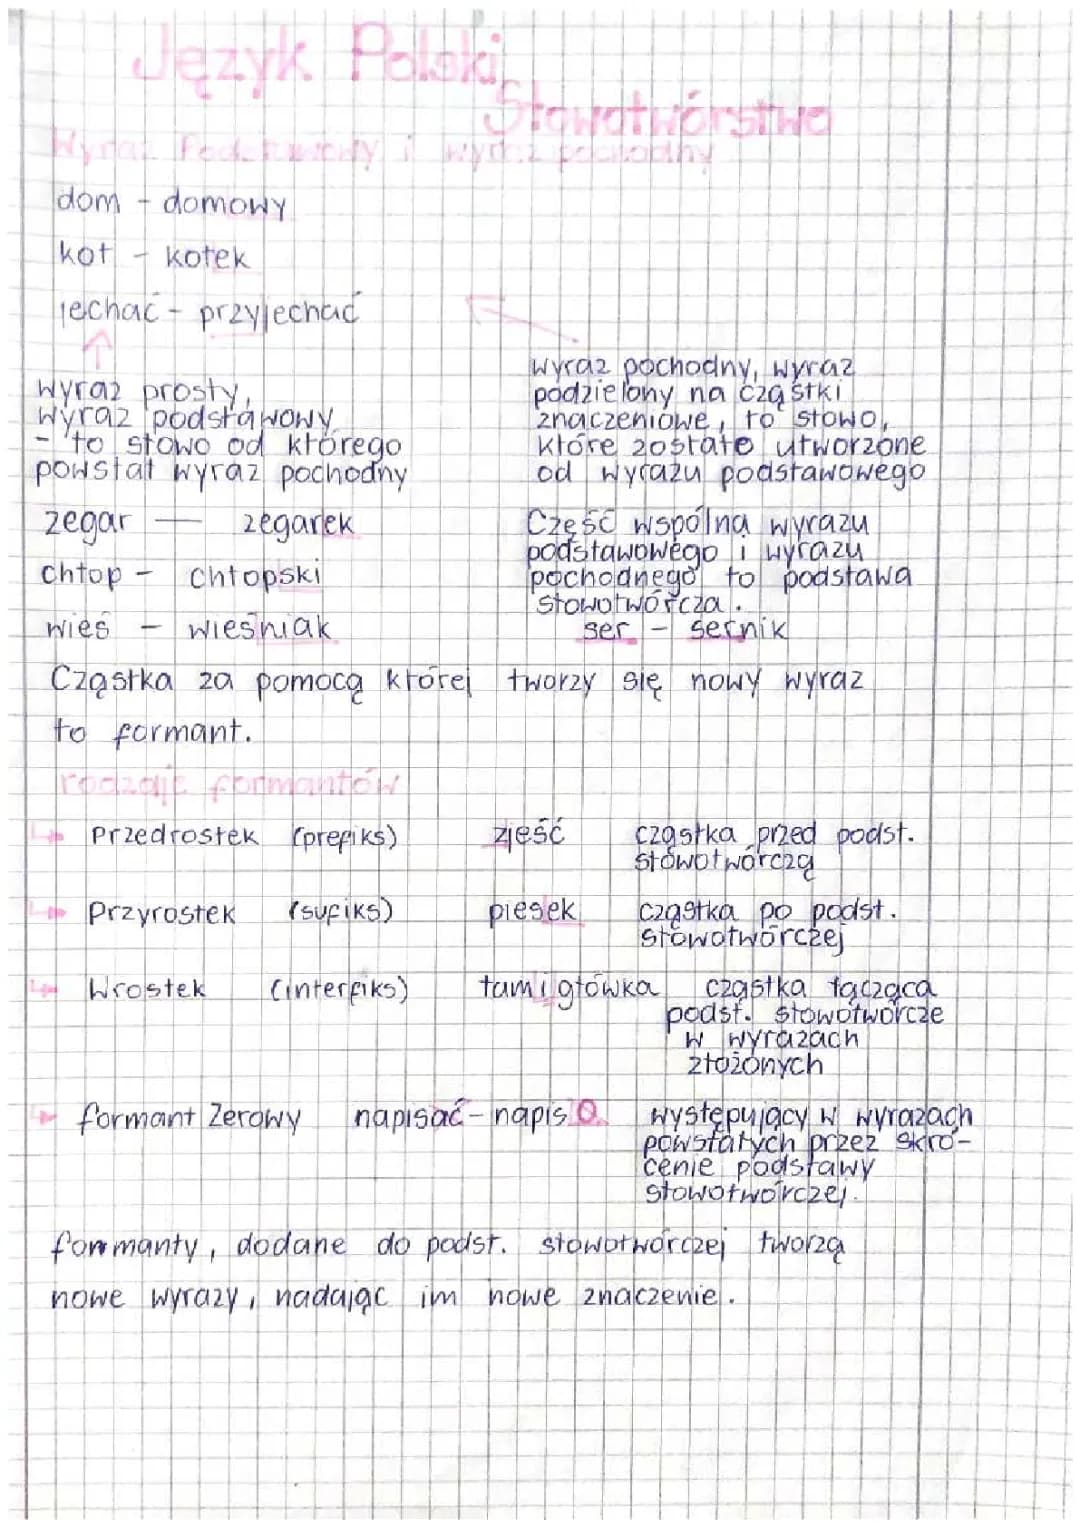 Język Polski
Słowotwórstwo
Wyraz Podstawowy i wyraz pochodny
dom - domowy
kot - kotek
jechać - przyjechać
wyraz prosty,
wyraz podstawowy
- to słowo od którego
powstał wyraz pochodny
wyraz pochodny, wyraz
podzielony na cząstki
znaczeniowe, to słowo,
które zostało utworzone
od wyrazu podstawowego
zegar — zegarek
chłop - chłopski
wieś - wieśniak
Część wspólna wyrazu
podstawowego i wyrazu
pochodnego to podstawa
słowotwórcza.
ser - sernik
Cząstka za pomocą której tworzy się nowy wyraz
to formant.
rodzaje formantów
Przedrostek (prefiks) zjeść cząstka przed podst.
słowotwórczą
Przyrostek (sufiks) piesek cząstka po podst.
słowotwórczej
Wrostek (interfiks) łamigłówka cząstka łącząca
podst. słowotwórcze
w wyrazach
złożonych
formant Zerowy napisać - napis O występujący w wyrazach
powstałych przez skró-
cenie podstawy
słowotwórczej.
formanty, dodane do podst. słowotwórczej tworzą
nowe wyrazy, nadając im nowe znaczenie.